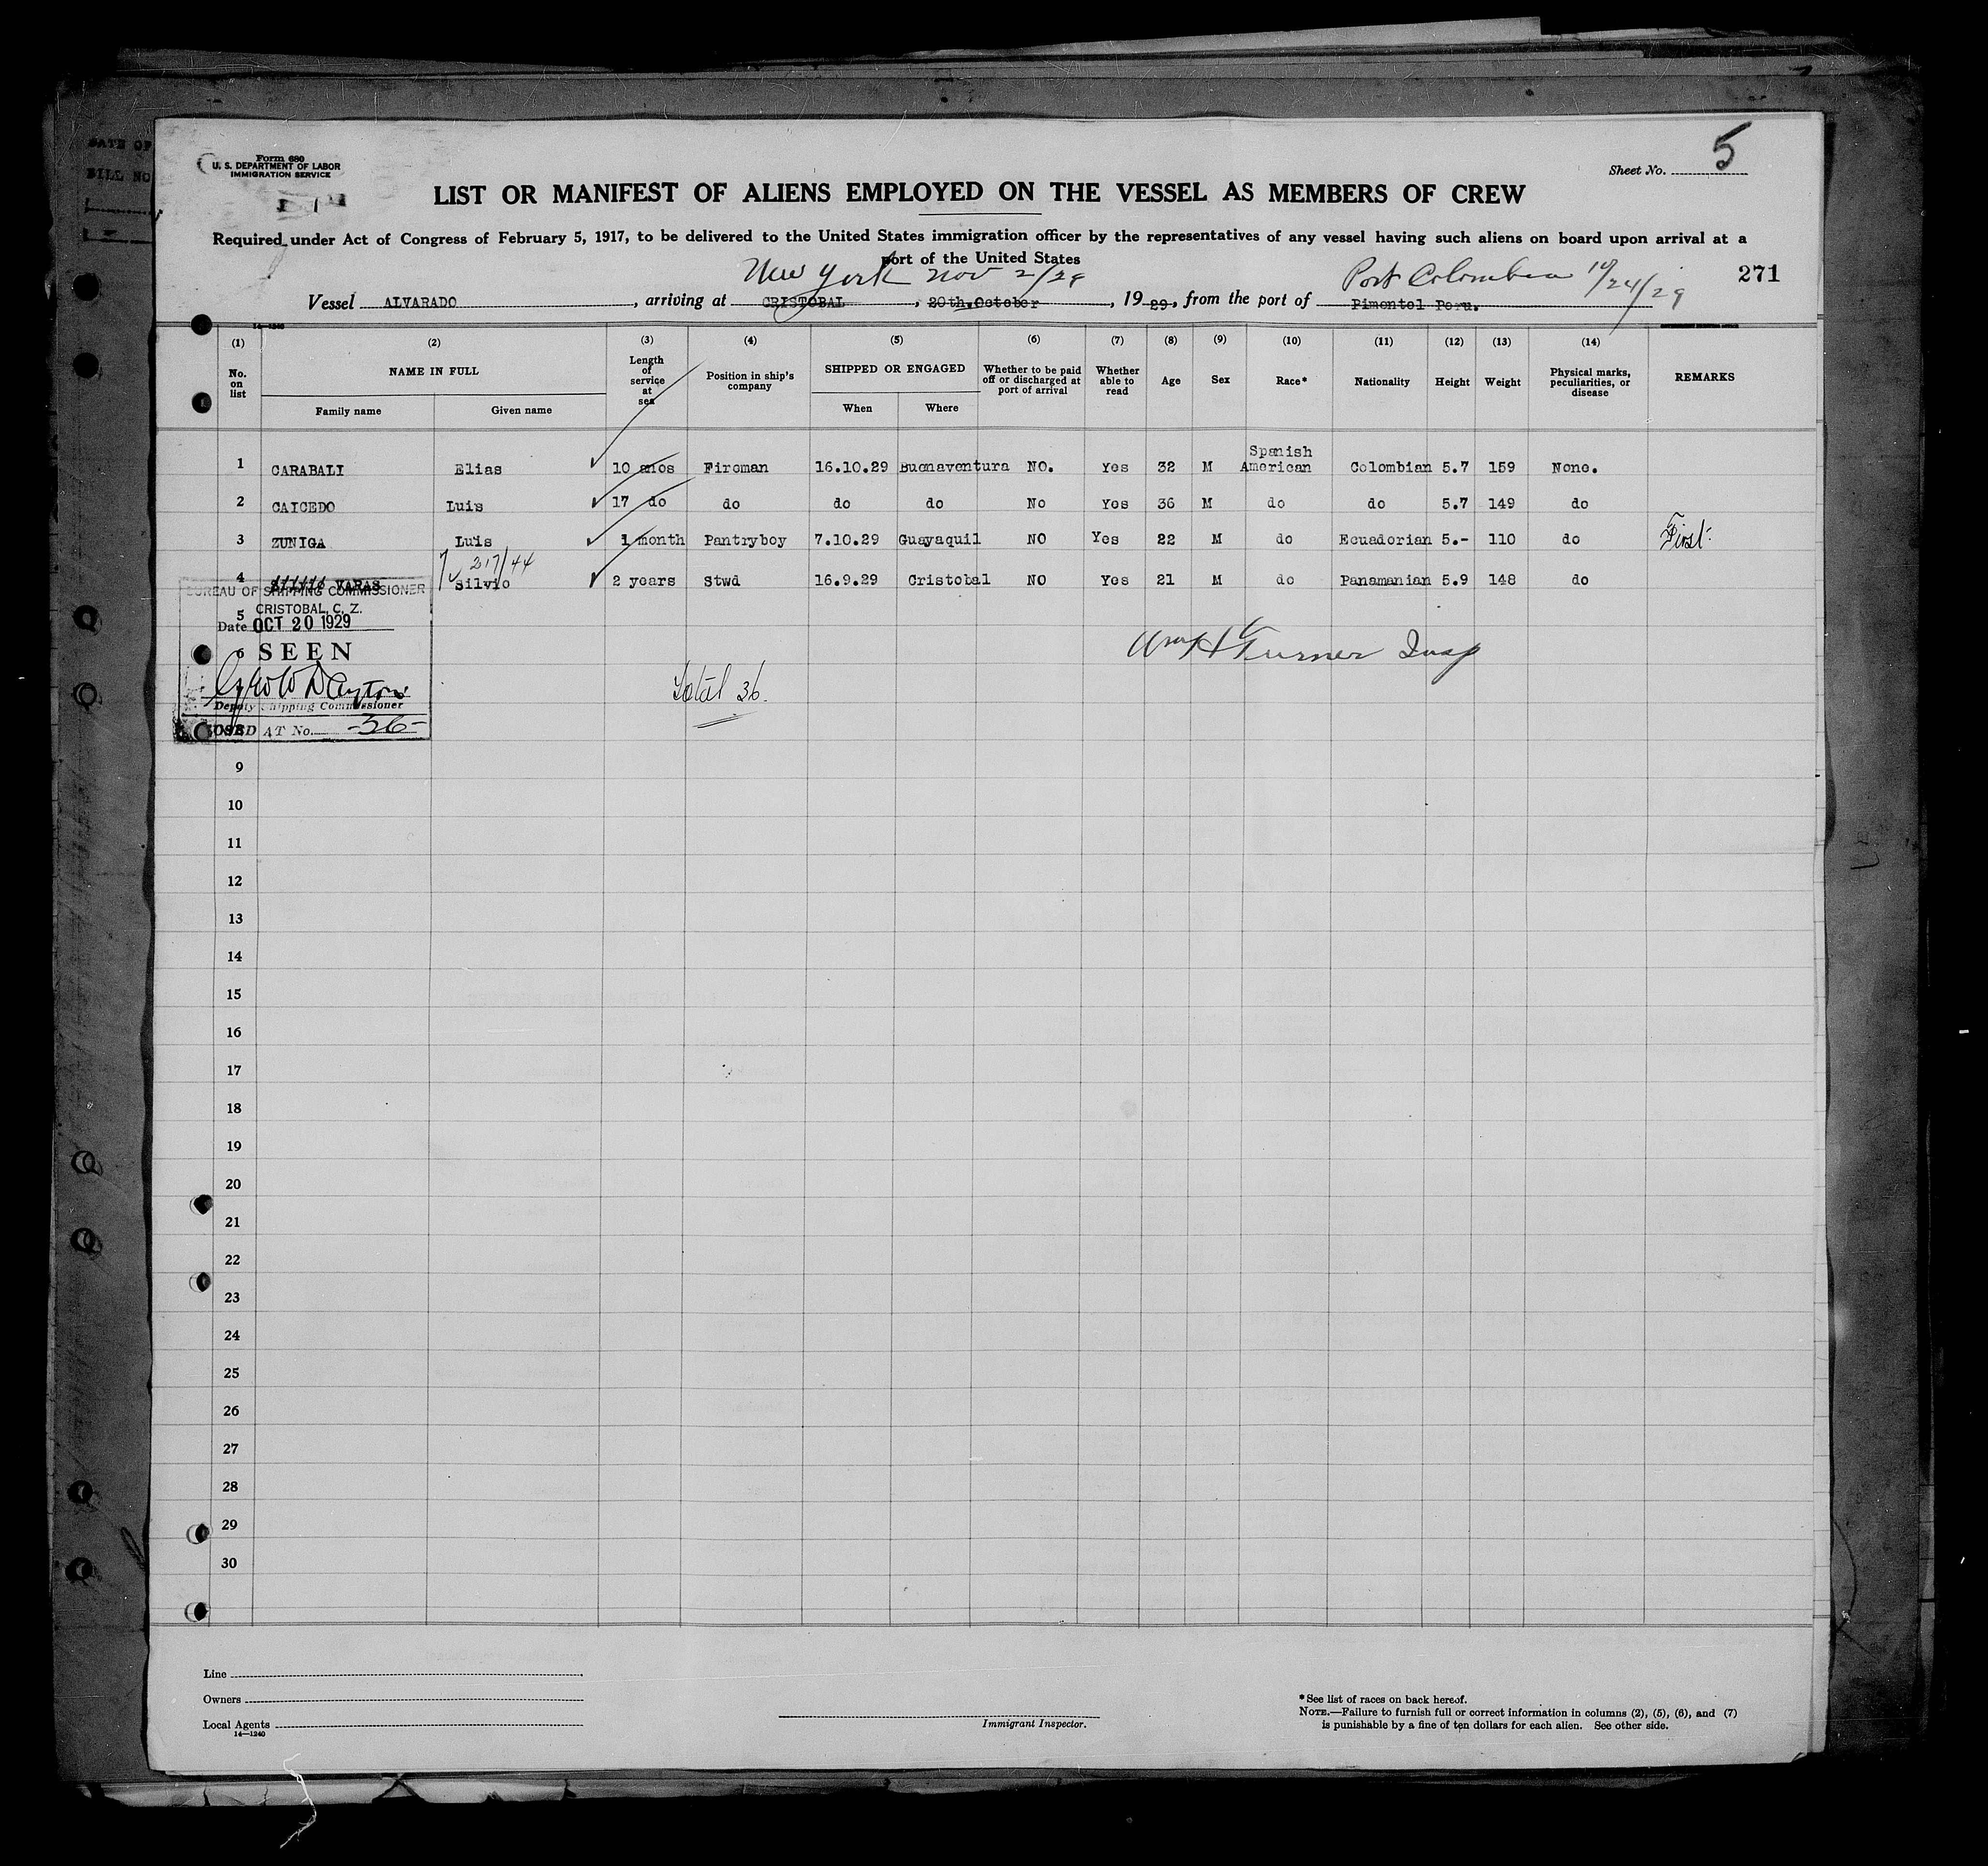 DATE OF
BILL NO
Form 680
U. S. DEPARTMENT OF LABOR
IMMIGRATION SERVICE
Sheet No. 5
LIST OR MANIFEST OF ALIENS EMPLOYED ON THE VESSEL AS MEMBERS OF CREW
Required under Act of Congress of February 5, 1917, to be delivered to the United States immigration officer by the representatives of any vessel having such aliens on board upon arrival at a
port of the United States
New York Nov 2/29 Port Colombia 10/24/29
271
Vessel ALVARADO, arriving at CRISTOBAL, 20th October, 1929, from the port of Pimentel Peru.
14-1240
(1) (2) (3) (4) (5) (6) (7) (8) (9) (10) (11) (12) (13) (14)
No. on list NAME IN FULL Length of service at sea Position in ship's company SHIPPED OR ENGAGED Whether to be paid off or discharged at port of arrival Whether able to read Age Sex Race* Nationality Height Weight Physical marks, peculiarities, or disease REMARKS
Family name Given name When Where
1 CARABALI Elias 10 anos Fireman 16.10.29 Buenaventura NO. Yes 32 M Spanish American Colombian 5.7 159 None.
2 CAICEDO Luis 17 do do do do No Yes 36 M do do 5.7 149 do
3 ZUNIGA Luis 1 month Pantryboy 7.10.29 Guayaquil NO Yes 22 M do Ecuadorian 5.- 110 do First
217/44
4 VARAS Silvio 2 years Stwd 16.9.29 Cristobal NO Yes 21 M do Panamanian 5.9 148 do
BUREAU OF SHIPPING COMMISSIONER
5 CRISTOBAL, C. Z.
Date OCT 20 1929
6 SEEN
Wm H Turner Insp
Dayton
Total 36.
Deputy Shipping Commissioner
8 AT No. -36-
9
10
11
12
13
14
15
16
17
18
19
20
21
22
23
24
25
26
27
28
29
30
Line
Owners
Local Agents
14-1240
Immigrant Inspector.
*See list of races on back hereof.
NOTE.—Failure to furnish full or correct information in columns (2), (5), (6), and (7)
is punishable by a fine of ten dollars for each alien. See other side.